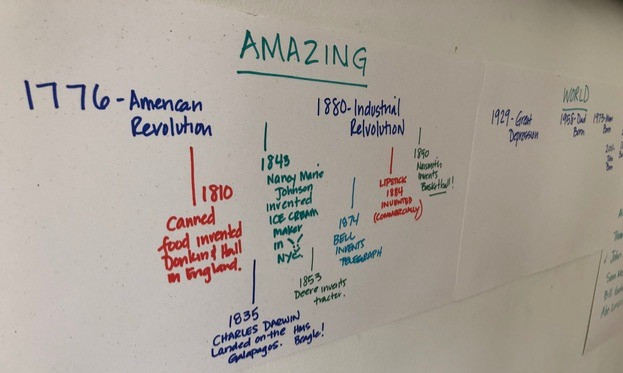 AMAZING
WORLD
1776-American
Revolution
1880-Industrial
Relvolution
1929-Great
Depression
1958-Dad
Born
1810
Canned
food invented
Donkin & Hall
in England.
1843
Nancy Marie
Johnson
invented
ICE CREAM
maker
in
NYC.
1835
CHARLES DARWIN
Landed on the HMS
Galapagos. Beagle!
1853
Deere invents
tracter.
1874
BELL
INVENTS
TELEGRAPH
LIPSTICK
1884
INVENTED
(COMMERCIALLY)
1890
Naismith
invents
Basketball!